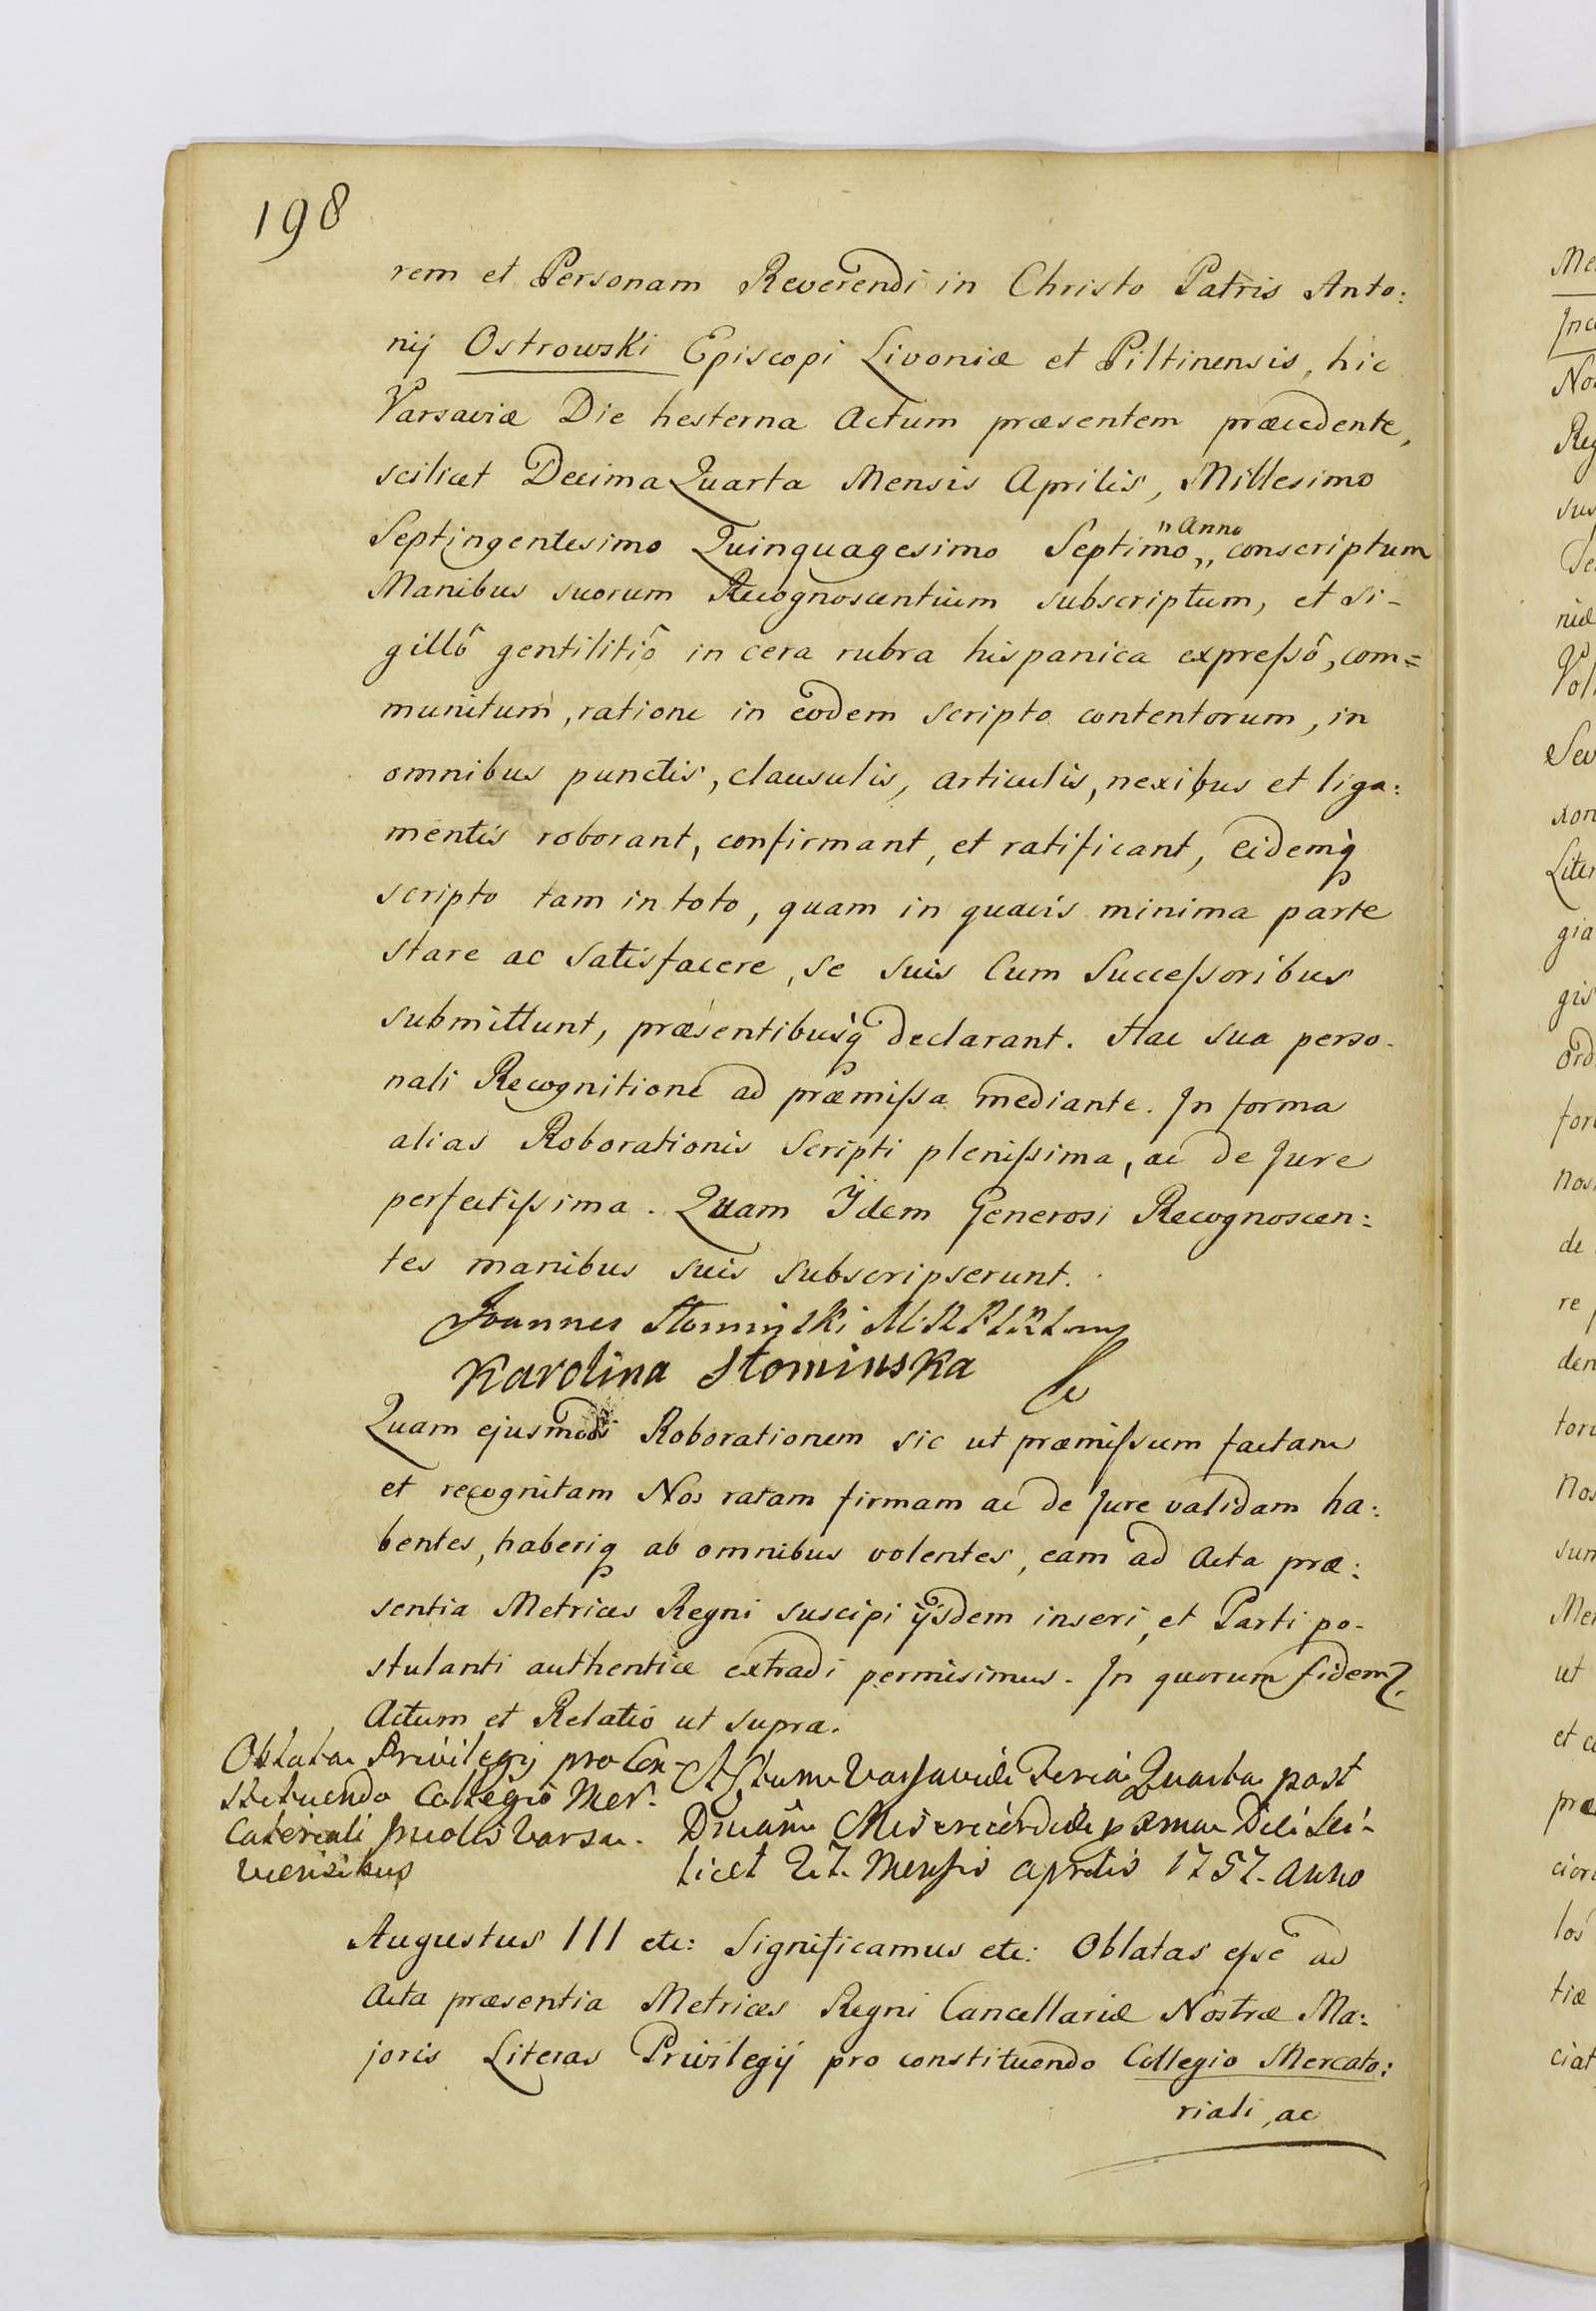 198
rem et Personam Reverendi in Christo Patris Anto:
nij Ostrowski Episcopi Livoniæ et Piltinensis, hic
Varsaviæ Die hesterna Actum præsentem præcedente,
scilicet Decima Quarta Mensis Aprilis, Millesimo
"Anno
Septingentesimo Quinquagesimo Septimo„ conscriptum
Manibus suorum Recognoscentium subscriptum, et si-
gillô gentilitiô in cera rubra hispanica expressô, com=
munitum, ratione in eodem scripto contentorum, in
omnibus punctis, clausulis, articulis, nexibus et liga:
mentis roborant, confirmant, et ratificant, eidemq́
scripto tam in toto, quam in quavis minima parte
stare ac satisfacere, se suis cum Successoribus
submittunt, præsentibusq́ declarant. Hac sua perso-
nali Recognitione ad præmissa mediante. In forma
alias Roborationis Scripti plenissima, ac de Jure
perfectissima. Quam Ijdem Generosi Recognoscen:
tes manibus suis subscripserunt.
Joannes Słomiński
Karolina Słominska
Quam ejusmodi Roborationem sic ut præmissum factam
et recognitam Nos ratam firmam ac de Jure validam ha:
bentes, haberiq ab omnibus volentes, eam ad Acta præ:
sentia Metrices Regni suscipi ijsdem inseri, et Parti po-
stulanti authentice extradi permisimus. In quorum fidem
Actum et Relatio ut supra.
Oblata Privilegij pro Con-
stituendo Collegio Mer-
catoriali Incolis Varsa-
viensibus
Actum Varsaviæ Feria Quarta post
Dnicam Misericordiæ pxma Die sci-
licet 27. Mensis Aprilis 1757. Anno
Augustus III etc: Significamus etc: Oblatas esse ad
Acta præsentia Metrices Regni Cancellariæ Nostræ Ma:
joris Literas Privilegij pro constituendo Collegio Mercato:
riali, ac